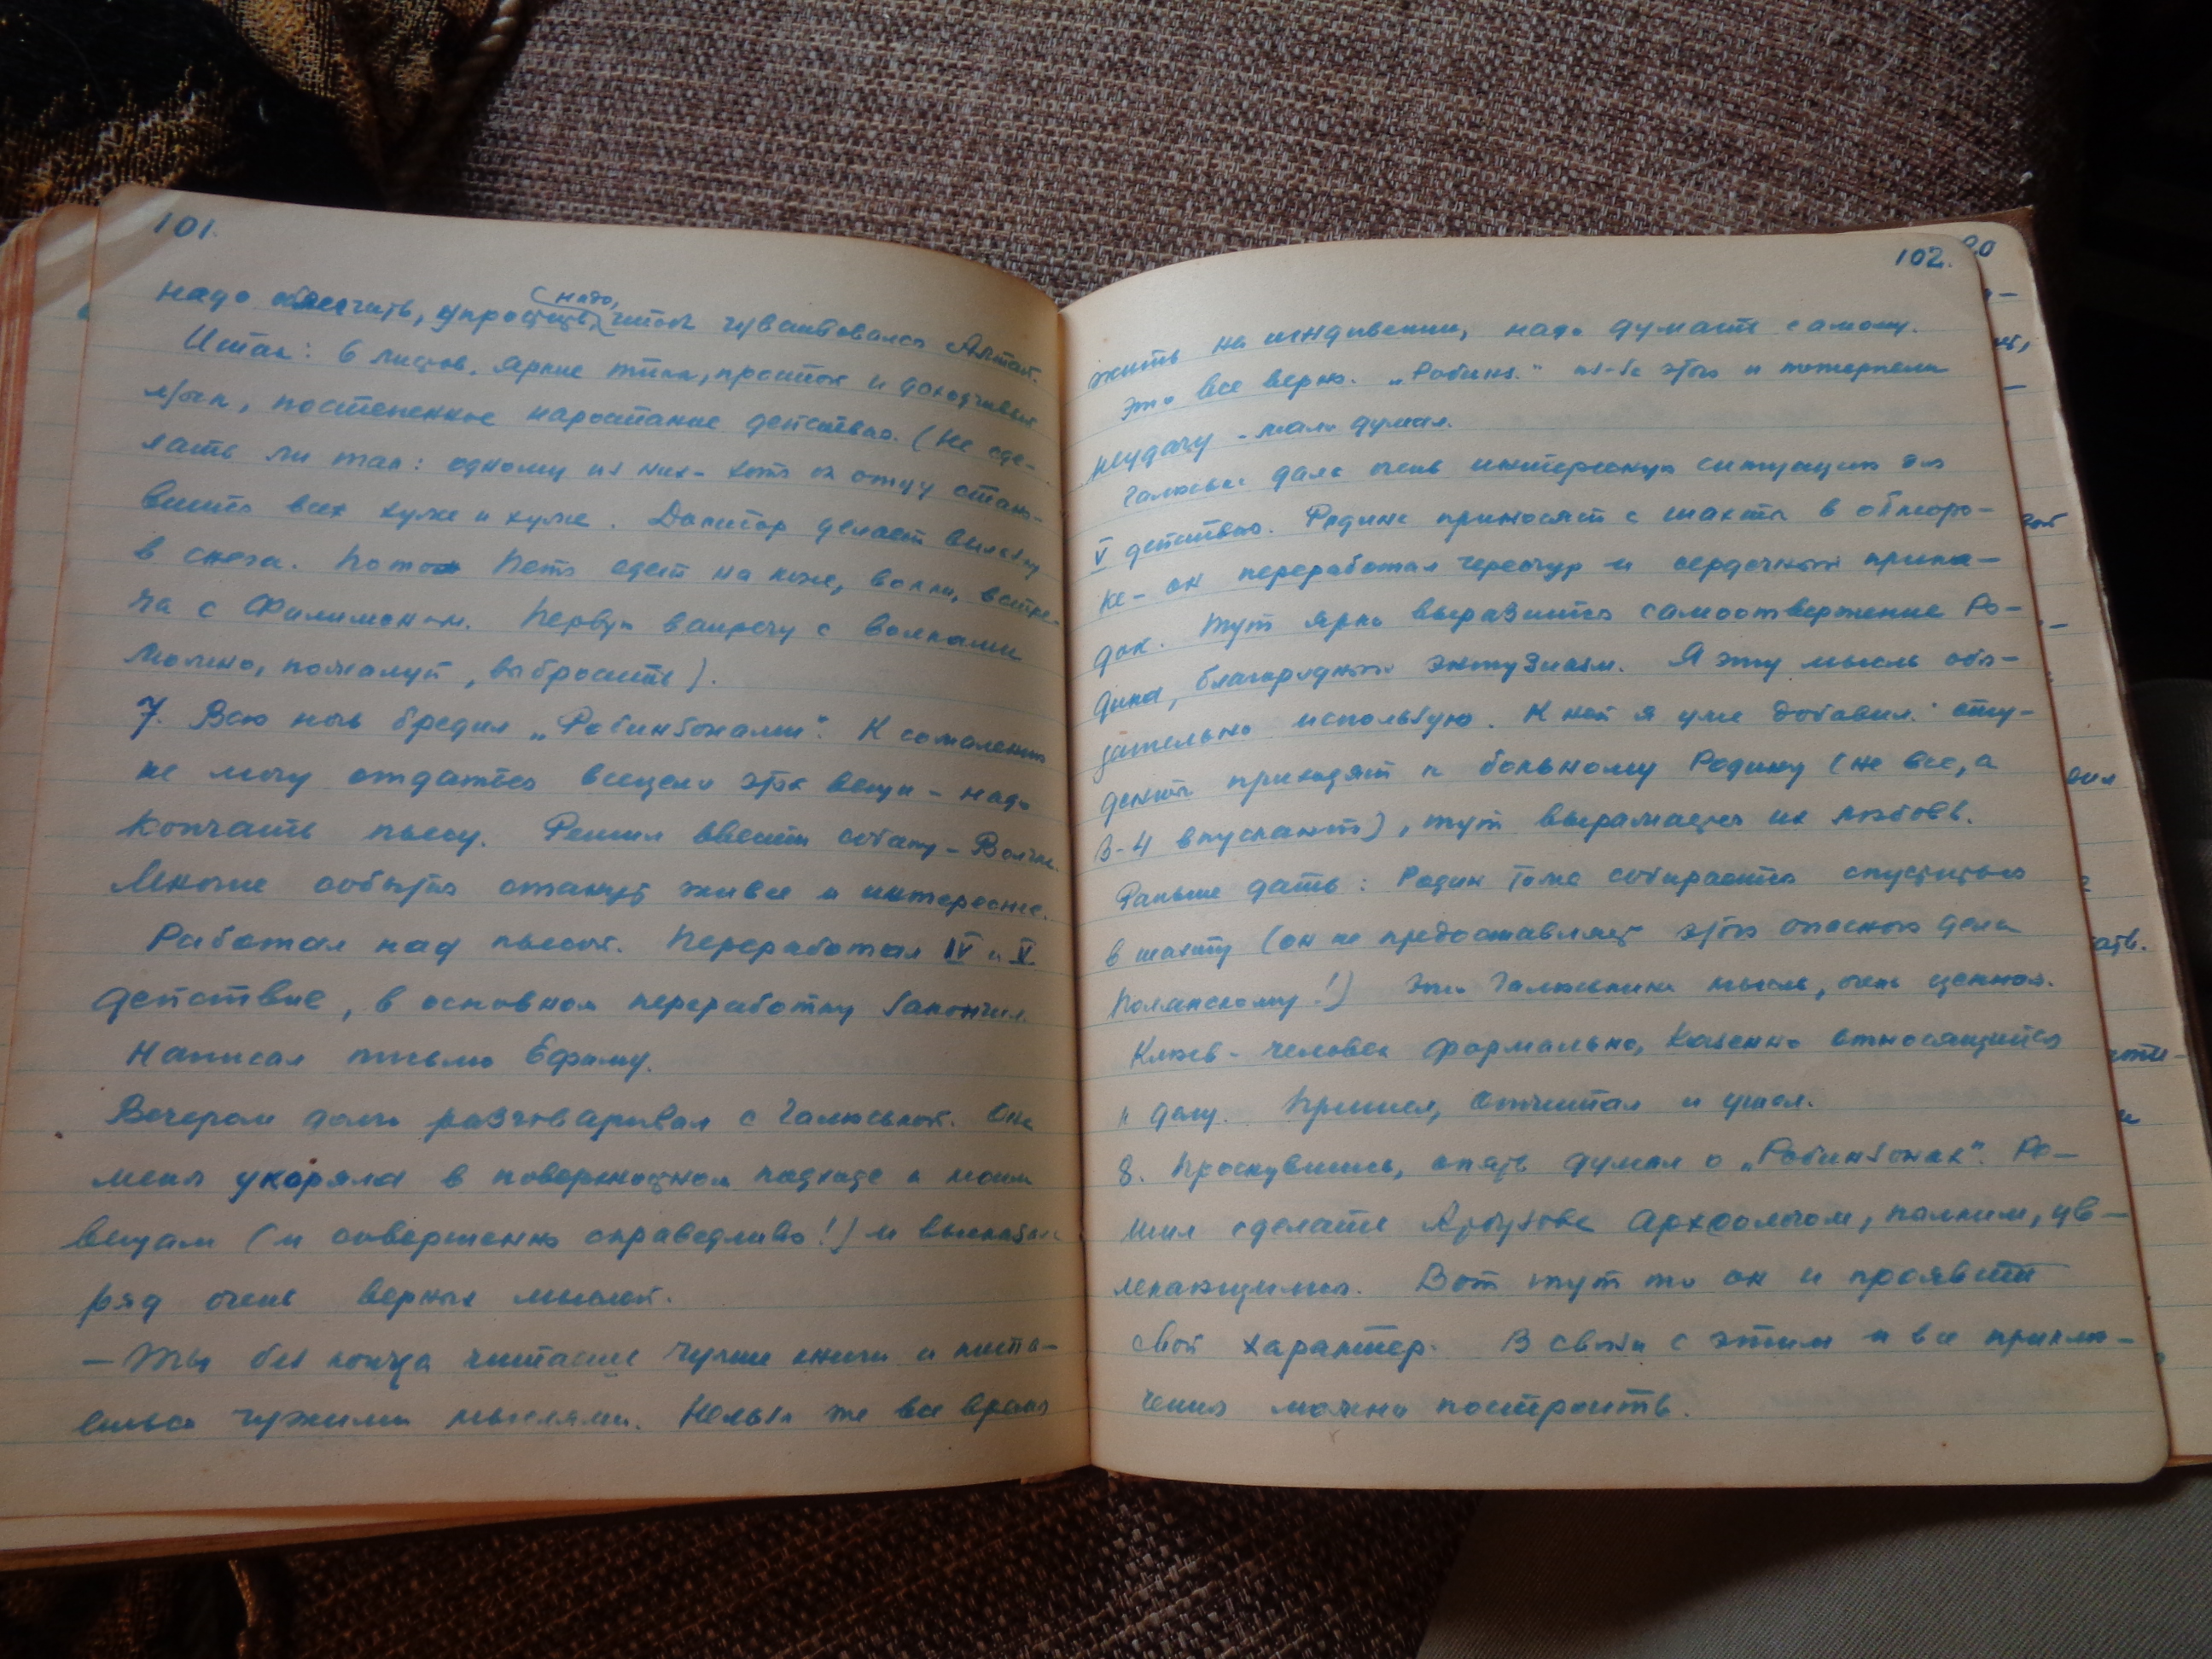 101.
надо облегчить, упростить, надо, чтоб чувствовался Алтай.
Итак: 6 листов, яркие типы, простой и доходчивый
язык, постепенное наростание действия. (Не сде-
лать ли так: одному из них - хотя бы отцу стано-
виться всех хуже и хуже. Доктор делает вылазку
в снега. Потом Петя едет на коне, волки, встре-
ча с Филимоном. Первую встречу с волками
можно, пожалуй, выбросить).
7. Всю ночь бредил „Робинзонами“. К сожалению
не могу отдаться всецело этой вещи - надо
кончать пьесу. Решил ввести собаку - Волчка.
Многие события станут живее и интереснее.
Работал над пьесой. Переработал IV и V
действие, в основном переработку закончил.
Написал письмо Ефиму.
Вечером долго разговаривал с Галюськой. Она
меня укоряла в поверхностном подходе к моим
вещам (и совершенно справедливо!) и высказала
ряд очень верных мыслей.
— Ты без конца читаешь чужие книги и пита-
ешься чужими мыслями. Нельзя же все время
102.
20
жить на иждивении, надо думать самому.
Это все верно. „Робинз.“ из-за этого и потерпели
неудачу - мало думал.
Галюська дала очень интересную ситуацию для
V действия. Родина приносят с шахты в обморо-
ке - он переработал чересчур и сердечный припа-
док. Тут ярко выразится самоотвержение Ро-
дина, благородный энтузиазм. Я эту мысль обя-
зательно использую. К ней я уже добавил: сту-
денты приходят к больному Родину (не все, а
3-4 впускают), тут выражается их любовь.
Раньше дать: Родин тоже собирается спуститься
в шахту (он не предоставляет этого опасного дела
Полянскому!) Эта Галюськина мысль, очень ценная.
Клюев - человек формально, казенно относящийся
к делу. Пришел, отчитал и ушел.
8. Проснувшись, опять думал о „Робинзонах“. Ре-
шил сделать Арбузова археологом, пылким, ув-
лекающимся. Вот тут то он и проявит
свой характер. В связи с этим и все приклю-
чения можно построить.